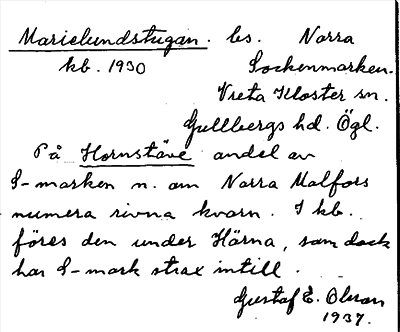 Marielundstugan. bs. Norra
kb. 1930 Sockenmarken.
Vreta Kloster sn.
Gullbergs hd. Ögl.
På Hornstäve andel av
S-marken n. om Norra Malfors
numera rivna kvarn. I kb.
föres den under Härna, som dock
har S-mark strax intill.
Gustaf E. Olsson
1937.